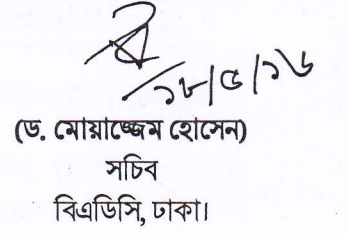 ১৮/৫/১৬
(ড. মোয়াজ্জেম হোসেন)
সচিব
বিএডিসি, ঢাকা।